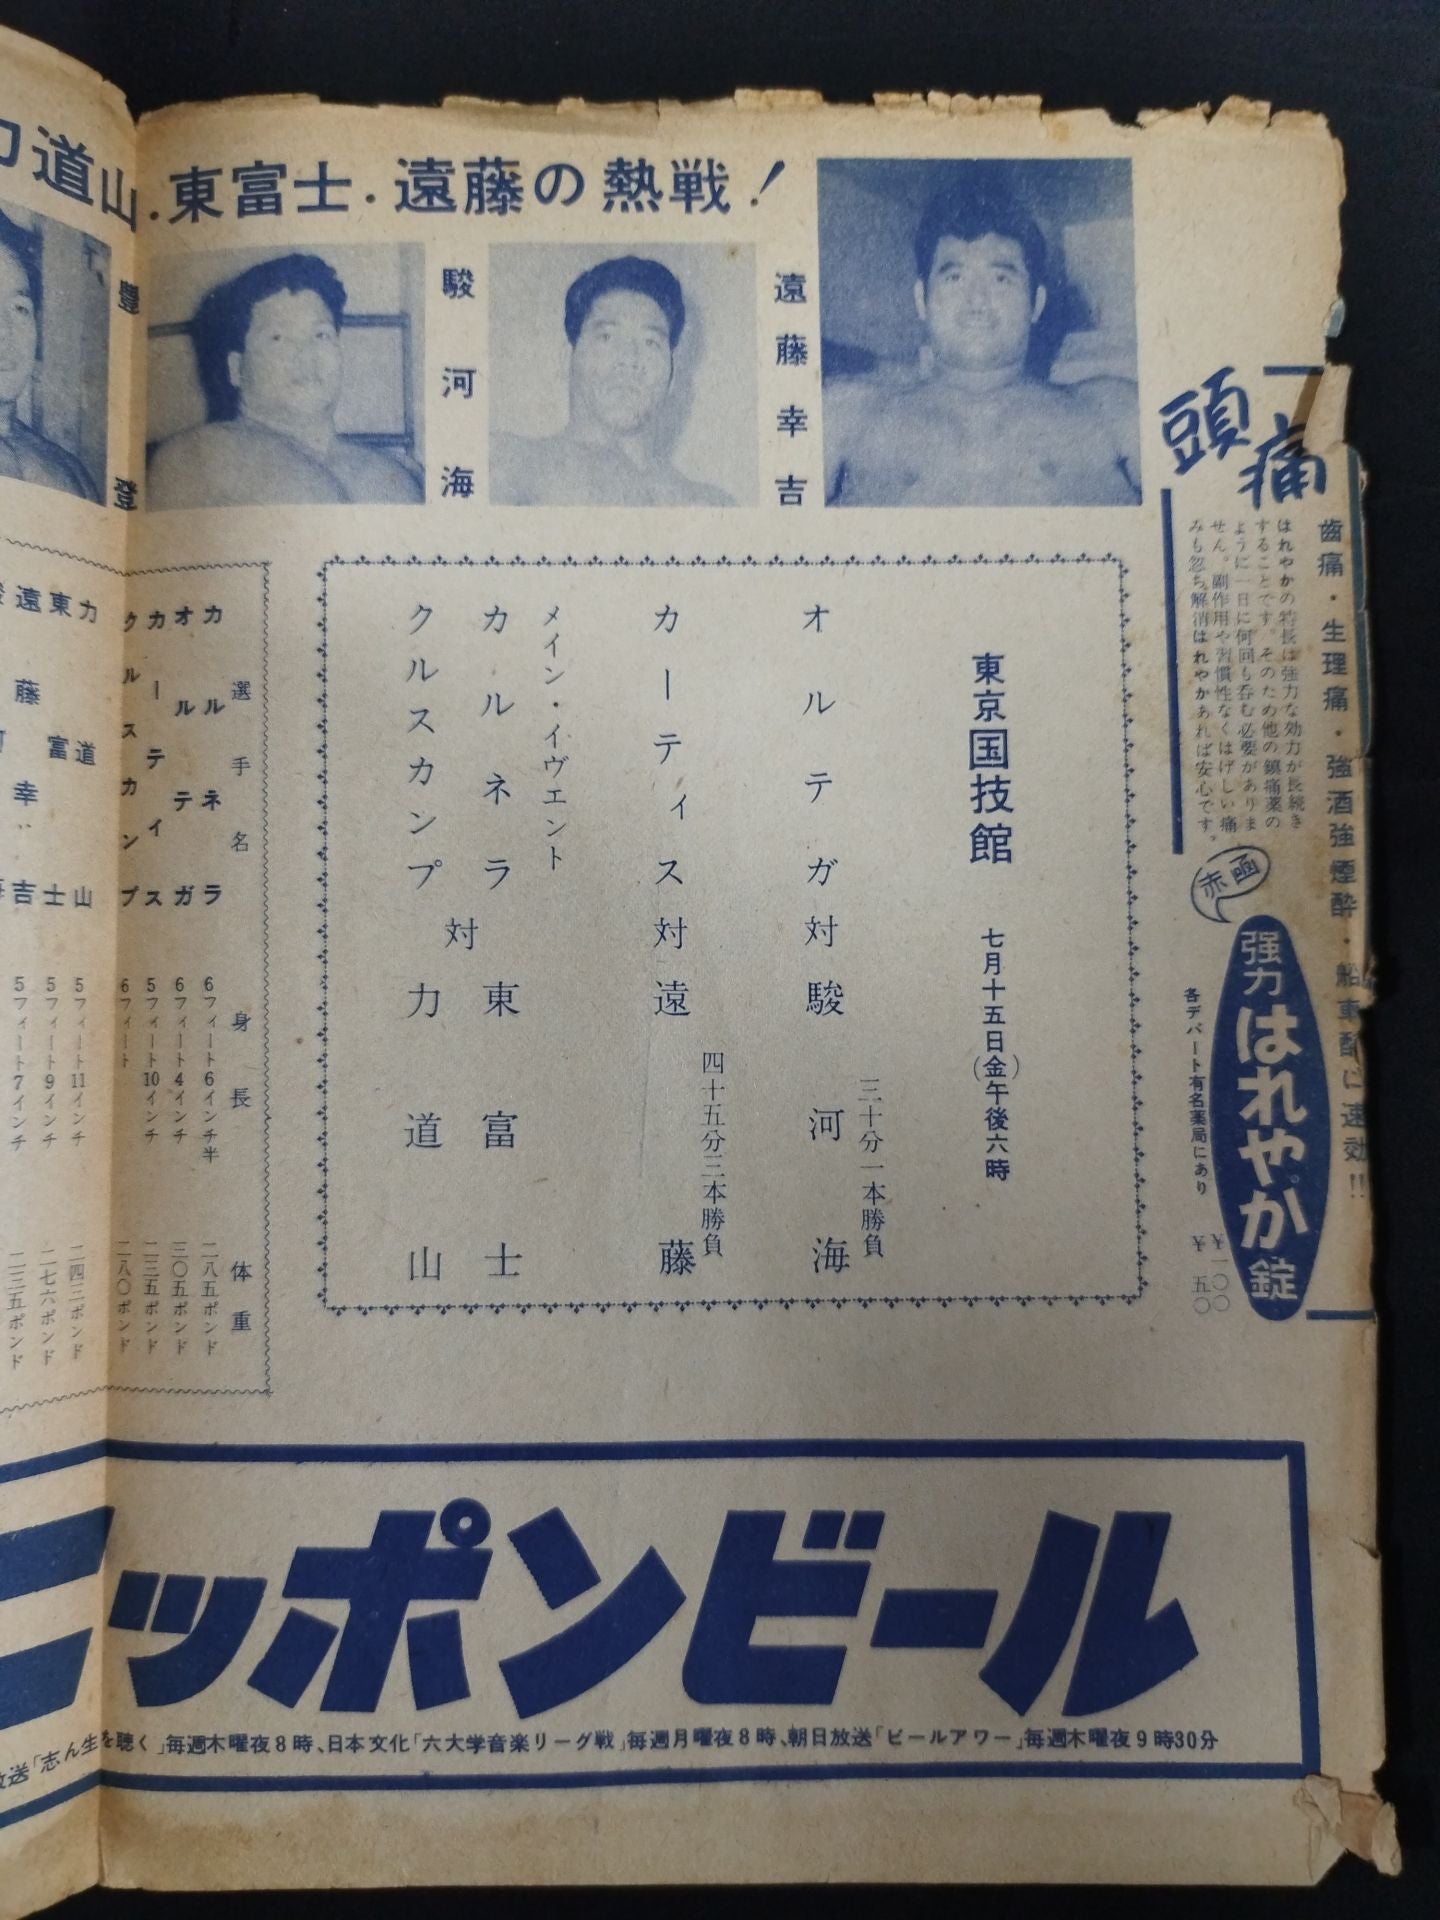 力道山・東富士・遠藤の熱戦！
遠藤幸吉
駿河海
豊登
東京国技館　七月十五日(金)午後六時
三十分一本勝負
オルテガ対駿河海
四十五分三本勝負
カーティス対遠藤
メイン・イヴェント
カルネラ
クルスカンプ
対
東富士
力道山
選手名　身長　体重
カルネラ　6フィート6インチ半　二八五ポンド
オルテガ　6フィート4インチ　三〇五ポンド
カーティス　5フィート10インチ　二三五ポンド
クルスカンプ　6フィート　二八〇ポンド
力道山　5フィート11インチ　二四三ポンド
東富士　5フィート9インチ　二七六ポンド
遠藤幸吉　5フィート7インチ　二三五ポンド
頭痛
歯痛・生理痛・強酒強煙酔・船車酔に速効!!
はれやかの特長は強力な効力が長続き
することです。そのため他の鎮痛薬の
ように一日に何回も呑む必要がありま
せん。副作用や習慣性なくはげしい痛
みも忽ち解消はれやかあれば安心です。
赤函
強力はれやか錠
各デパート有名薬局にあり
￥一〇〇
￥五〇
ニッポンビール
放送「志ん生を聴く」毎週木曜夜8時、日本文化「六大学音楽リーグ戦」毎週月曜夜8時、朝日放送「ビールアワー」毎週木曜夜9時30分